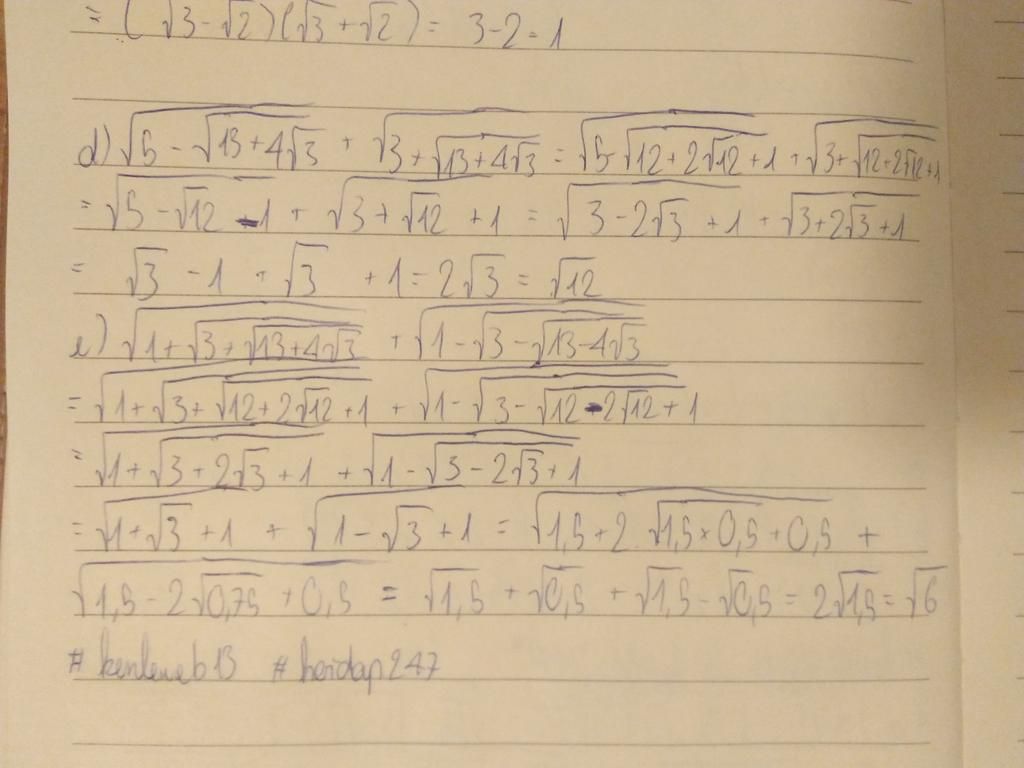 = (√3-√2)(√3+√2) = 3-2=1
d) √(5 - √(13+4√3)) + √(3+√(13+4√3)) = √(5-√(12+2√12+1)) + √(3+√(12+2√12+1))
= √(5-√12 - 1) + √(3+√12 +1) = √(3-2√3 +1) + √(3+2√3+1)
= √3 -1 + √3 +1 = 2√3 = √12
e) √(1+√(3+√(13+4√3))) + √(1-√(3-√(13-4√3)))
= √(1+√(3+√(12+2√12+1))) + √(1-√(3-√(12-2√12+1)))
= √(1+√(3+2√3+1)) + √(1-√(3-2√3+1))
= √(1+√3+1) + √(1-√3+1) = √(1,5+2.√(1,5×0,5)+0,5) +
√(1,5-2√0,75+0,5) = √1,5 + √0,5 + √1,5-√0,5 = 2√1,5=√6